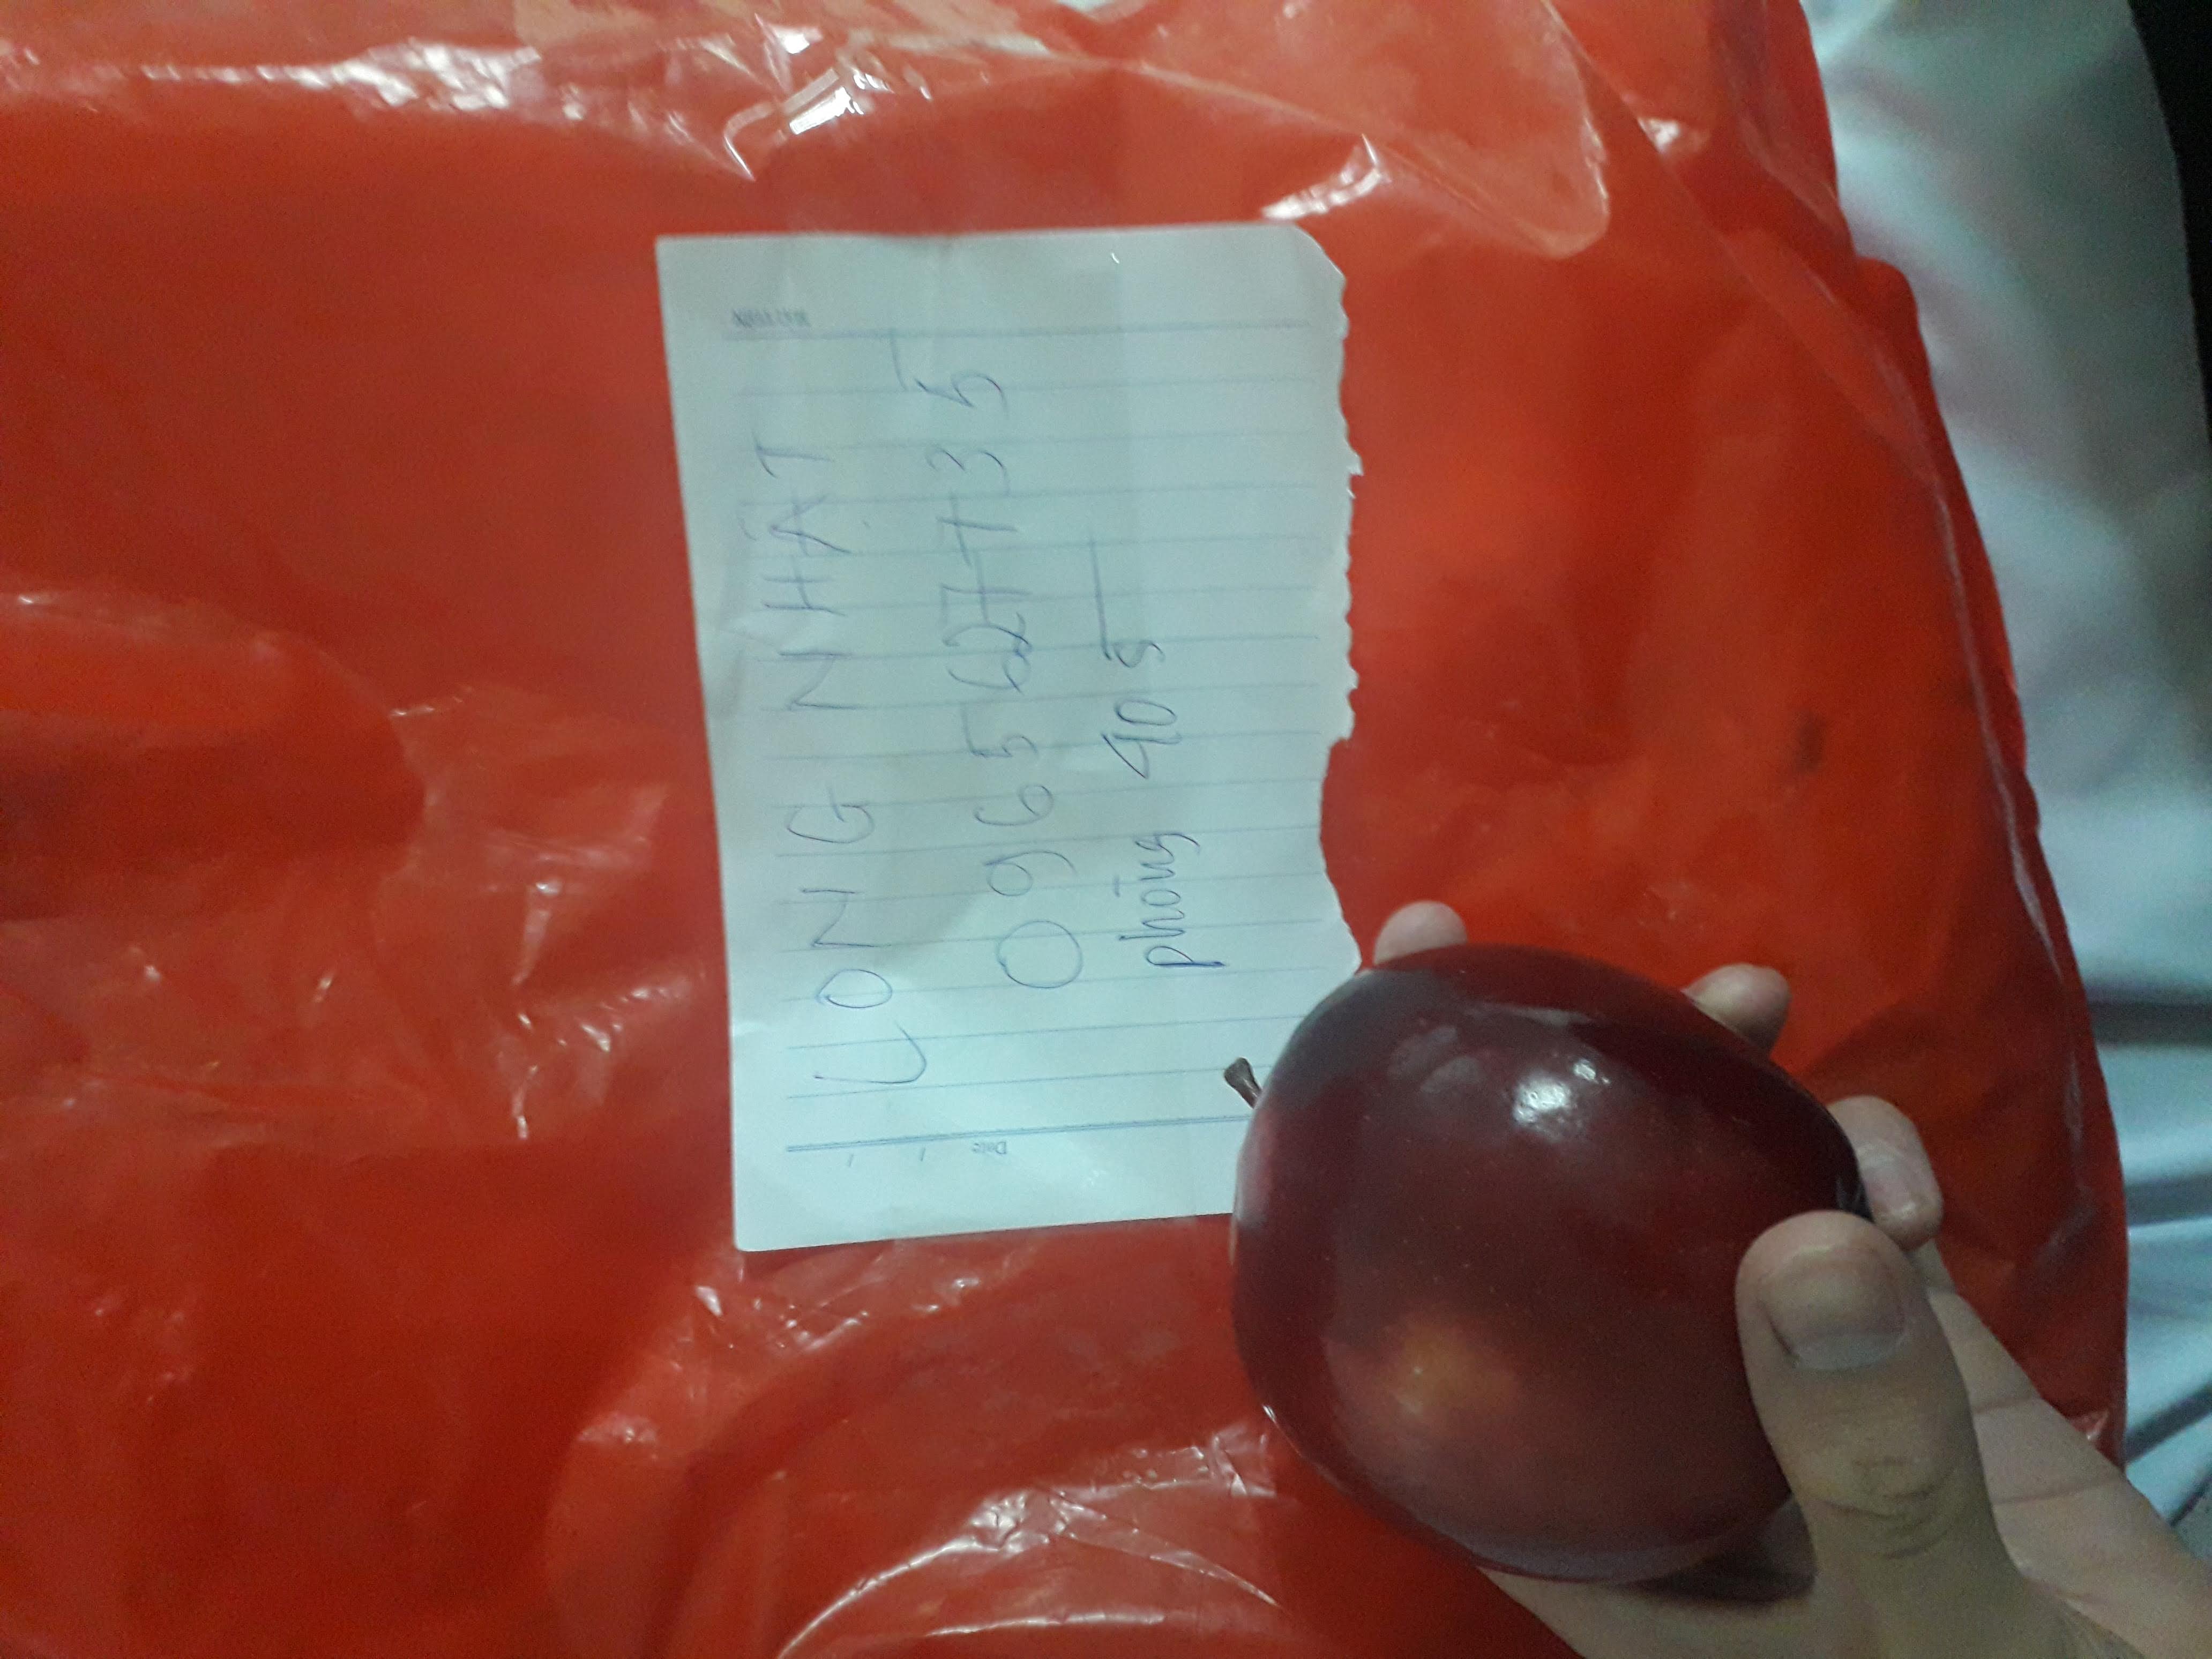 LONG NHẬT
0965627735
phòng 405
Date